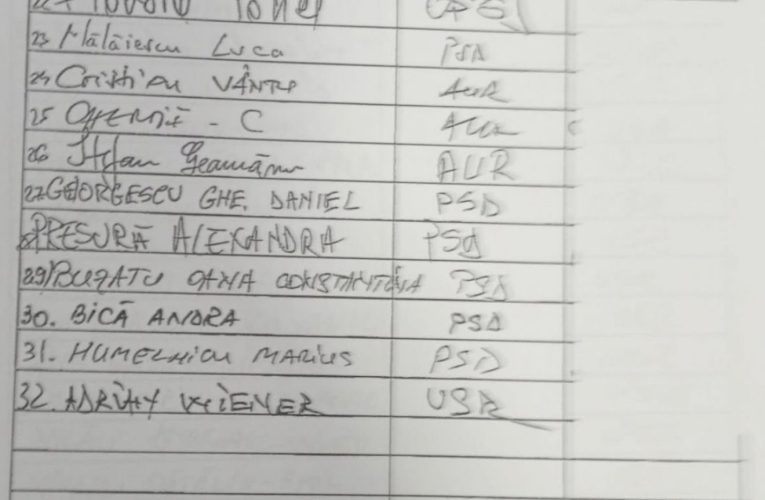 23 Mălăiescu Luca PSD
24 Cristian VÂNTU AUR
25 - C AUR
26 Ștefan Geamănu AUR
27 GEORGESCU GHE. DANIEL PSD
PRESURĂ ALEXANDRA PSD
29) BUZATU OANA CONSTANTINA PSD
30. BICĂ ANDRA PSD
31. HUMELNICU MARIUS PSD
32. ADRIAN WIENER USR